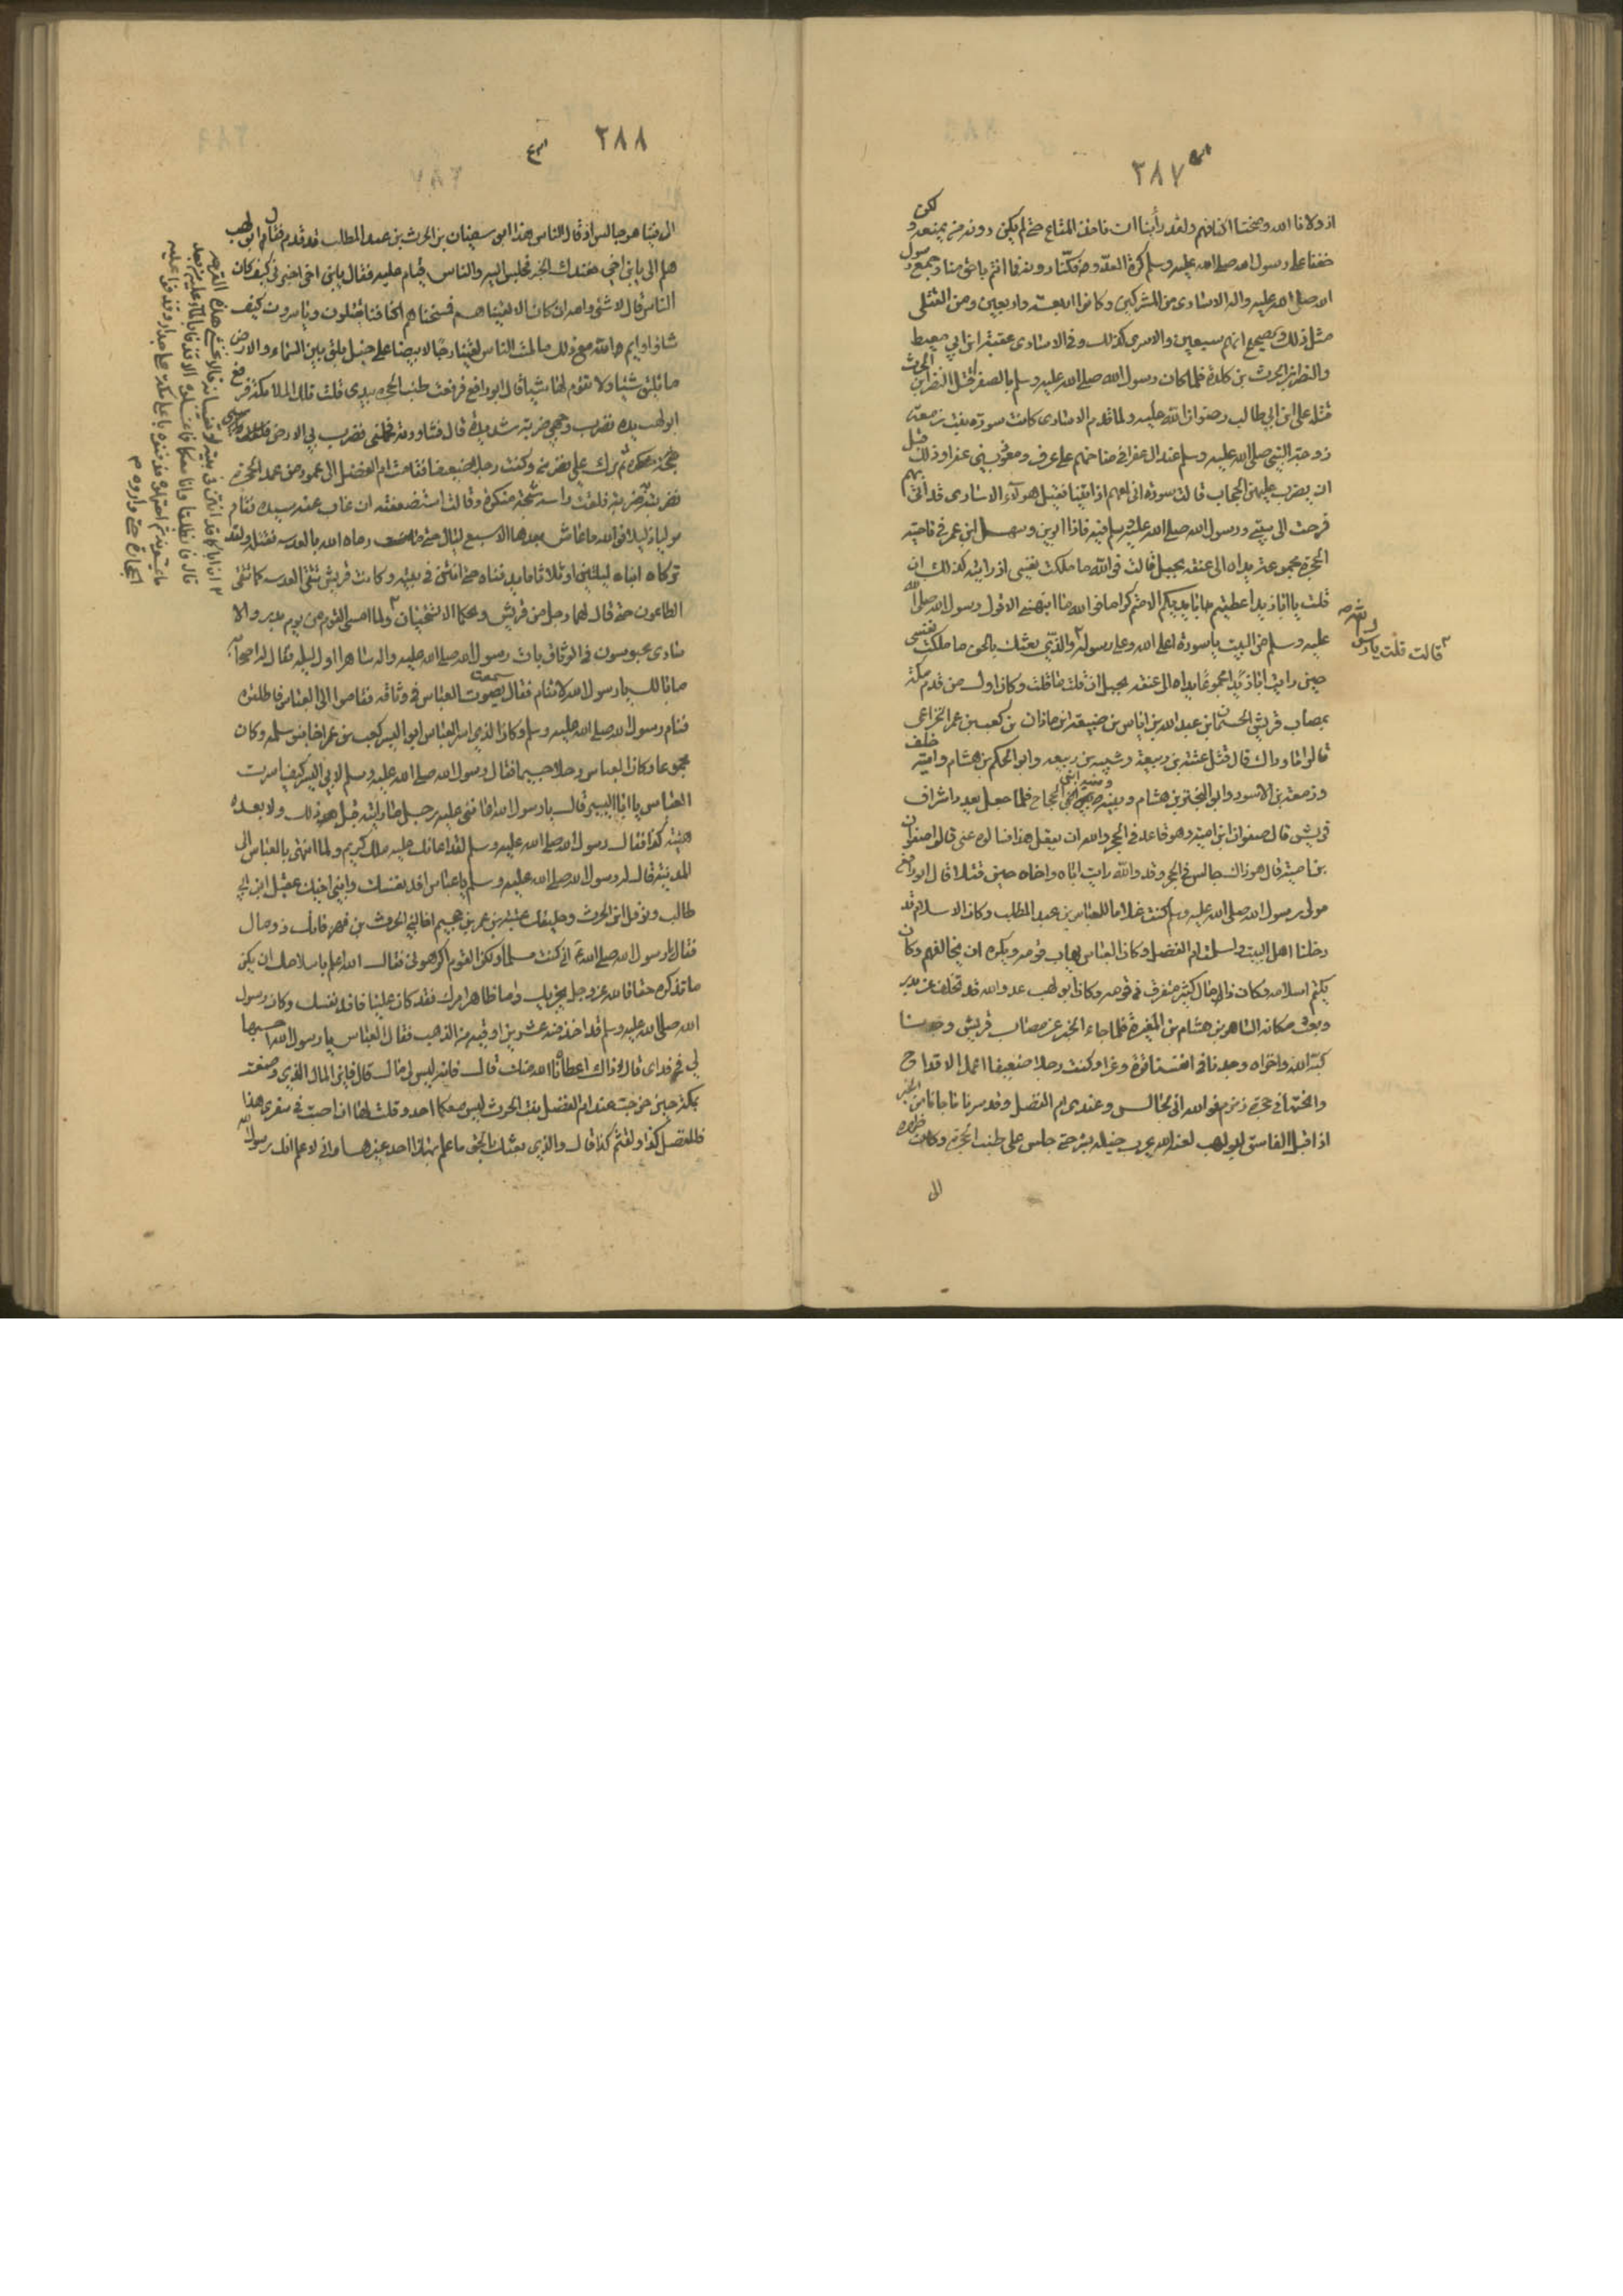 ٣٨٧
اذ ولانا الله ومنحنا اكتافهم ولقد رأينا ان ناخذ المتاع حتى لم يكن دونه من يمنعه ولكن
خفنا على رسول الله صلى الله عليه وسلم كرة العدو فما انتم باحق منا وجمع رسول
الله صلى الله عليه واله الاسارى من المشركين وكانوا اربعة واربعين ومن القتلى
مثل ذلك والصحيح انهم سبعين والاسرى كذلك وفى الاسارى عقبة ابن ابي معيط
والنضر ابن الحرث بن كلدة فلما كان رسول الله صلى الله عليه وسلم بالصفرا قتل النضر ابن الحرث
قتله على ابن ابي طالب رضوان الله عليه ولما قدم الاسارى كانت سودة بنت زمعة
زوجة النبي صلى الله عليه وسلم عند ال عفرا فى مناحتهم على عوف ومعوذ بني عفرا وذلك قبل
ان يضرب عليهن الحجاب قالت سودة انى لعندهم اذ اتينا فقيل هولاء الاسارى قد اتى بهم
فرحت الى بيتى ورسول الله صلى الله عليه وسلم فيه فاذا ابو يزيد سهل ابن عمر فى ناحية
الحجرة مجموعة يداه الى عنقه بحبل قالت فوالله ما ملكت نفسى اذ رايته كذلك ان
قلت يا ابا يزيد اعطيتم بايديكم الا متم كراما فوالله ما انبهنى الا قول رسول الله صلى الله
عليه وسلم من البيت يا سودة اعلى الله وعلى رسوله والذي بعثك بالحق ما ملكت نفسى
قالت قلت يا رسول الله
حين رايت ابا يزيد مجموعة يداه الى عنقه بحبل ان قلت ما قلت وكان اول من قدم مكة
بمصاب قريش الحسمان ابن عبد الله بن اياس بن ضبيعة ابن مازن بن كعب بن عمر الخزاعى
قالوا ما وراك قال قتل عتبة بن ربيعة وشيبه بن ربيعه وابو الحكم بن هشام وامية خلف
وزمعة بن الاسود وابو البختري بن هشام ونبيه ومنبه ابنى الحجاج فلما جعل يعدد اشراف
قريش قال صفوان ابن امية وهو قاعد فى الحجر والله ان يعقل هذا فسالوه عنى قالوا ما فعل صفوان
بن امية قال هوذاك جالس فى الحجر وقد والله رايت اباه واخاه حين قتلا قال ابو رافع
مولى رسول الله صلى الله عليه وسلم كنت غلاما للعباس بن عبد المطلب وكان الاسلام قد
دخلنا اهل البيت واسلمت ام الفضل وكان العباس يهاب قومه ويكره ان يخالفهم وكان
يكتم اسلامه وكان ذا مال كثير متفرق فى قومه وكان ابو لهب عدو الله قد تخلف عن بدر
وبعث مكانه العاص بن هشام بن المغيرة فلما جاء الخبر عن مصاب قريش وجدنا
كبته الله واخزاه وجدنا فى انفسنا قوة وعزا وكنت رجلا ضعيفا اعمل الاقداح
وانحتها فى حجرة زمزم فوالله انى لجالس وعندى ام الفضل وقد سرنا ما جانا من الخبر
اذ اقبل الفاسق ابو لهب لعنه الله يجر رجليه بشر حتى جلس على طنب الحجرة وكان ظهره
الى
٣٨٨
الى فبينا هو جالس اذ قال الناس هذا ابو سفيان بن الحرث بن عبد المطلب قد قدم فقال ابو لهب
هلم الى يا بن اخى فعندك الخبر فجلس اليه والناس قيام عليه فقال يا بن اخى اخبرنى كيف كان
الناس قال لا شئ والله ان كان الا لقيناهم فمنحناهم اكتافنا يقتلون وياسرون كيف
شاؤا وايم الله مع ذلك ما لمت الناس لقينا رجالا بيضا على خيل بلق بين السماء والارض
ما تليق شيئا ولا تقوم لها شيئا قال ابو رافع فرفعت طنب الحجره بيدى قلت تلك الملائكة فرفع
ابو لهب يده فضرب وجهى ضربة شديدة قال فثاورته فحملنى فضرب بي الارض
ثم برك على يضربنى وكنت رجلا ضعيفا فقامت ام الفضل الى عمود من عمد الحجرة
فضربته ضربة فلقت راسه شجة منكرة وقالت استضعفته ان غاب عنه سيده فقام
موليا ذليلا فوالله ما عاش بعدها الا سبع ليال حتى رماه الله بالعدسه فقتله ولقد
تركاه ابناه ليلتين او ثلاثا ما يدفناه حتى انتن فى بيته وكانت قريش تتقى العدسه كما تتقى
الطاعون حتى قال لهما رجل من قريش ويحكما الا تستحيان ولما امسى القوم من يوم بدر والا
ان اباكما قد انتن فى بيته لا تغيبانه قالا نخشى هذه القرحه
قال فانطلقا وانا معكما فما غسلوه الا قذفا بالماء عليه من بعد
ما يمسونه ثم احتملوه فدفنوه باعلى مكة على جدار وقذفوا عليه
الحجارة حتى واروه
سارى محبوسون فى الوثاق بات رسول الله صلى الله عليه واله ساهرا اول ليله فقال له اصحابه
ما بالك يا رسول الله لا تنام فقال سمعت صوت العباس فى وثاقه فقاموا الى العباس فاطلقوه
فنام رسول الله صلى الله عليه وسلم وكان الذي اسر العباس ابو اليسر كعب بن عمر اخا بنو سلمه وكان
مجموعا وكان العباس رجلا جسيما فقال رسول الله صلى الله عليه وسلم لابي اليسر كيف اسرت
العباس يا ابا اليسر قال يا رسول الله اعاننى عليه رجل ما رايته قبل ذلك ولا بعده
هيئته كذا فقال رسول الله صلى الله عليه وسلم لقد اعانك عليه ملك كريم ولما انتهى بالعباس الى
المدينة قال له رسول الله صلى الله عليه وسلم يا عباس افد نفسك وابني اخيك عقيل ابن ابي
طالب ونوفل ابن الحرث وحليفك عتبة بن عمر بن جحدم اخا بني الحرث بن فهر فانك ذو مال
فقال يا رسول الله انى كنت مسلما ولكن القوم اكرهونى فقال الله اعلم باسلامك ان يكن
ما تذكره حقا فالله عز وجل يجزيك واما ظاهر امرك فقد كان علينا فافد نفسك وكان رسول
الله صلى الله عليه وسلم قد اخذ منه عشرين اوقيه من الذهب فقال العباس يا رسول الله احسبها
لي فى فداى قال لا ذاك اعطاناه الله منك قال فانه ليس لى مال قال فاين المال الذي وضعته
بمكة حين خرجت عند ام الفضل بنت الحرث ليس معكما احد وقلت لها ان اصبت فى سفرى هذا
فللفضل كذا ولقثم كذا قال والذي بعثك بالحق ما علم بهذا احد غيرها وانى لاعلم انك رسول الله